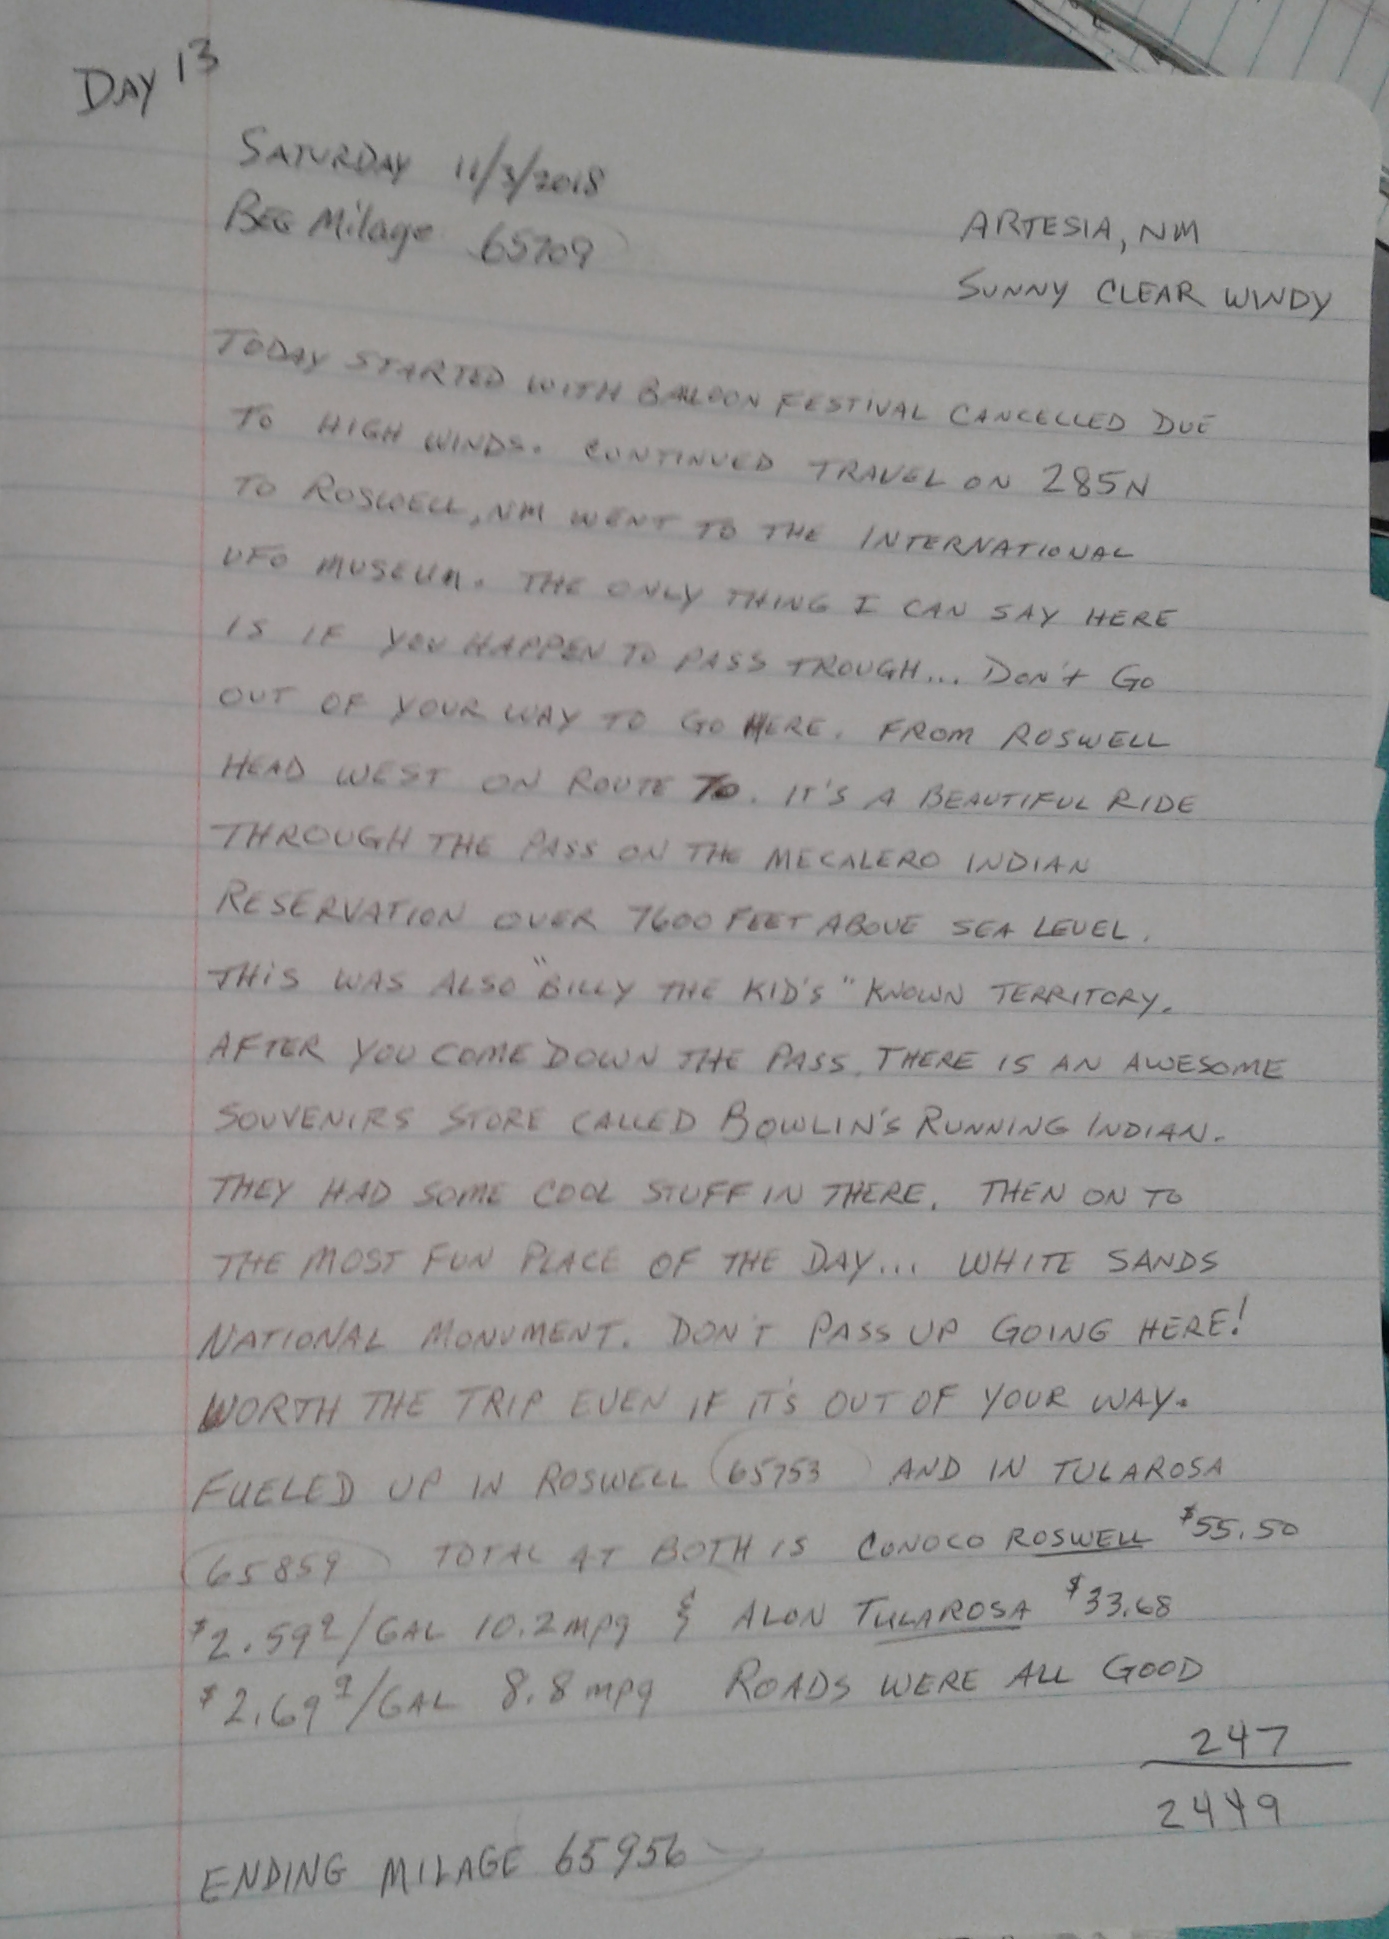 DAY 13
SATURDAY 11/3/2018
BEG Milage 65709
ARTESIA, NM
SUNNY CLEAR WINDY
TODAY STARTED WITH BALLOON FESTIVAL CANCELLED DUE
TO HIGH WINDS. CONTINUED TRAVEL ON 285N
TO ROSWELL, NM WENT TO THE INTERNATIONAL
UFO MUSEUM. THE ONLY THING I CAN SAY HERE
IS IF YOU HAPPEN TO PASS TROUGH... DON'T GO
OUT OF YOUR WAY TO GO HERE. FROM ROSWELL
HEAD WEST ON ROUTE 70. IT'S A BEAUTIFUL RIDE
THROUGH THE PASS ON THE MECALERO INDIAN
RESERVATION OVER 7600 FEET ABOVE SEA LEVEL.
THIS WAS ALSO "BILLY THE KID'S" KNOWN TERRITORY.
AFTER YOU COME DOWN THE PASS, THERE IS AN AWESOME
SOUVENIRS STORE CALLED BOWLIN'S RUNNING INDIAN.
THEY HAD SOME COOL STUFF IN THERE. THEN ON TO
THE MOST FUN PLACE OF THE DAY... WHITE SANDS
NATIONAL MONUMENT. DON'T PASS UP GOING HERE!
WORTH THE TRIP EVEN IF IT'S OUT OF YOUR WAY.
FUELED UP IN ROSWELL (65753) AND IN TULAROSA
(65859) TOTAL AT BOTH IS CONOCO ROSWELL $55.50
$2.599/GAL 10.2mpg & ALON TULAROSA $33.68
$2.699/GAL 8.8mpg ROADS WERE ALL GOOD
247
2449
ENDING MILAGE 65956